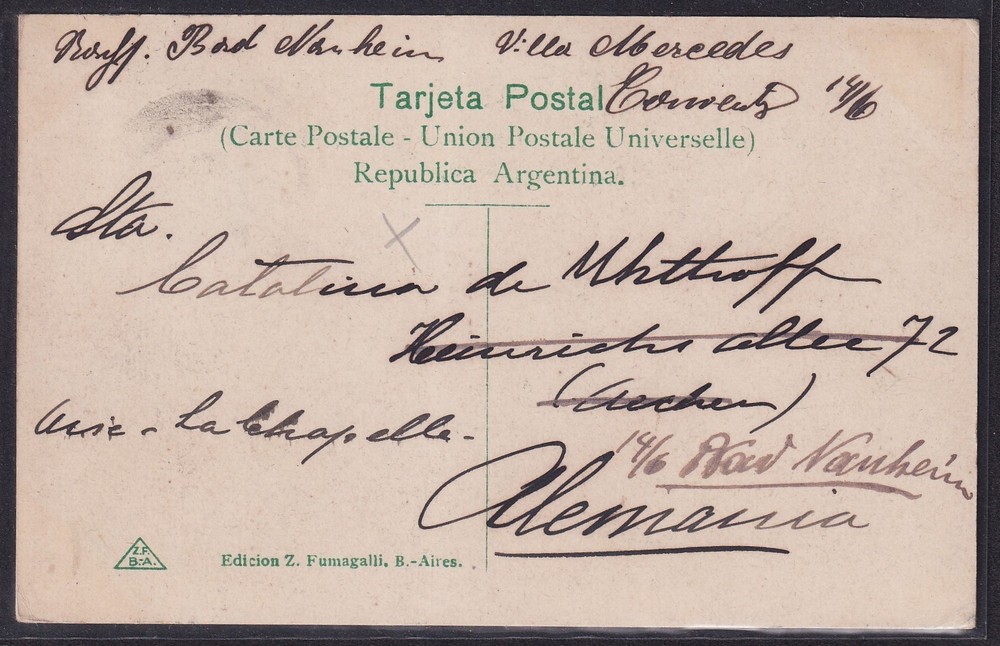 Bad Nauheim Villa Mercedes
Tarjeta Postal 14/6
(Carte Postale - Union Postale Universelle)
Republica Argentina.
Sta.
Catalina de Uhtthoff
Heinrichs allee 72
(Aechen)
Aix - La Chapelle -
14/6 Bad Nauheim
Alemania
Z.F.
B.-A.
Edicion Z. Fumagalli. B.-Aires.